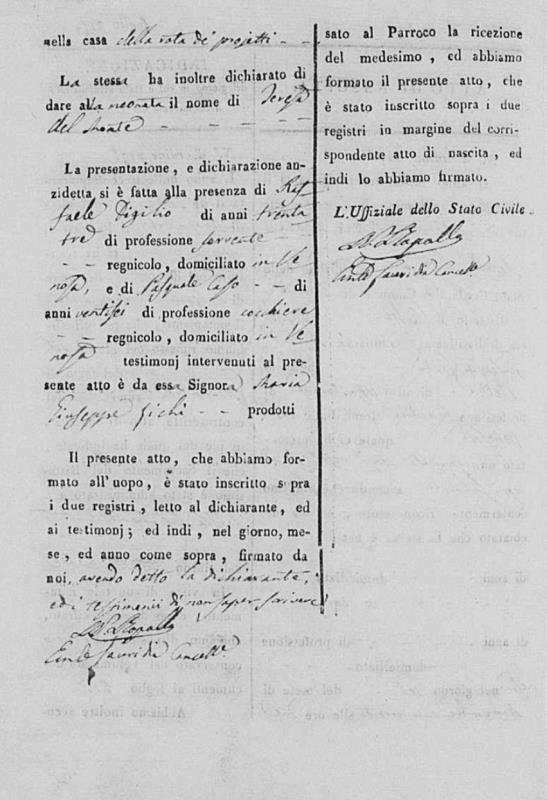 nella casa della rota de' projetti
La stessa ha inoltre dichiarato di
dare alla neonata il nome di Teresa
del Monte
La presentazione, e dichiarazione an-
zidetta si è fatta alla presenza di Raf-
faele Digilio di anni trenta
tre di professione servente
regnicolo, domiciliato in Ve
nosa, e di Pasquale Caso di
anni ventisei di professione cocchiere
regnicolo, domiciliato in Ve
nosa testimonj intervenuti al pre-
sente atto è da essa Signora Maria
Giuseppe Fichi prodotti
Il presente atto, che abbiamo for-
mato all'uopo, è stato inscritto sopra
i due registri, letto al dichiarante, ed
ai testimonj; ed indi, nel giorno, me-
se, ed anno come sopra, firmato da
noi, avendo detto la dichiarante,
ed i testimonii di non saper scrivere
sato al Parroco la ricezione
del medesimo, ed abbiamo
formato il presente atto, che
è stato inscritto sopra i due
registri in margine del corri-
spondente atto di nascita, ed
indi lo abbiamo firmato.
L'Uffiziale dello Stato Civile